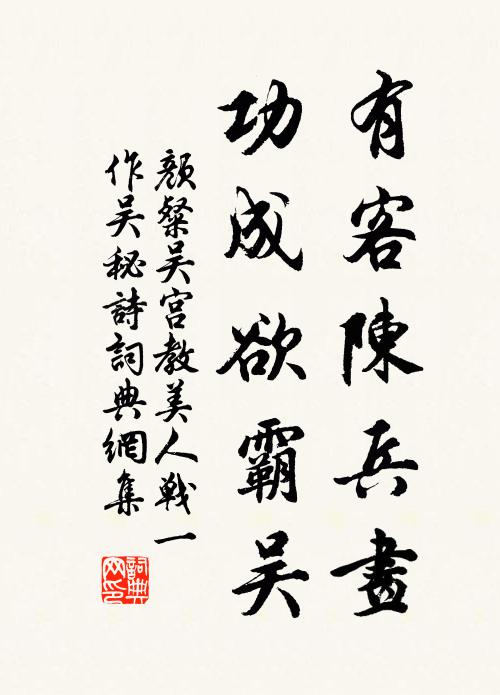 有客陳兵畫
功成欲霸吴
顏粲吴宫教美人戰一
作吴秘詩詞典網集
詞典网印